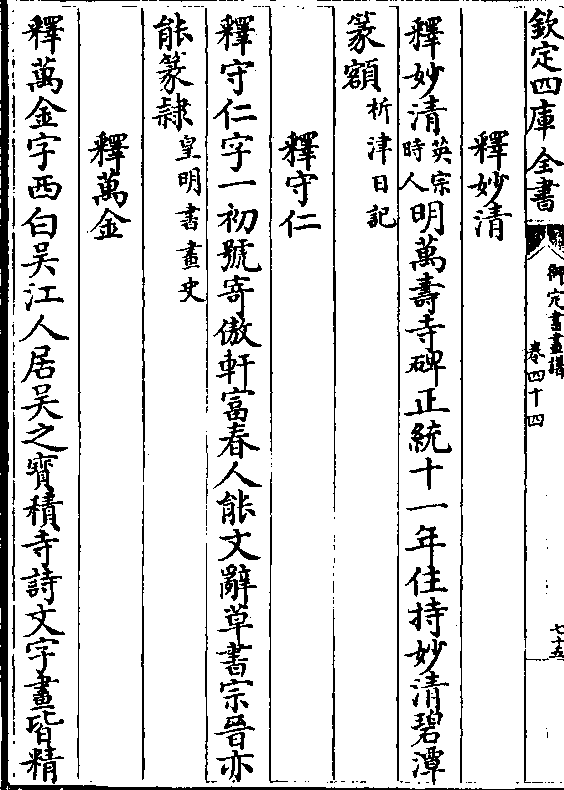 欽定四庫全書
御定書畫譜
卷四十四
七十五
釋妙清
釋妙清英宗時人明萬壽寺碑正統十一年住持妙清碧潭
篆額析津日記
釋守仁
釋守仁字一初號寄傲軒富春人能文辭草書宗晉亦
能篆隷皇明書畫史
釋萬金
釋萬金字西白吳江人居吳之寶積寺詩文字畫皆精